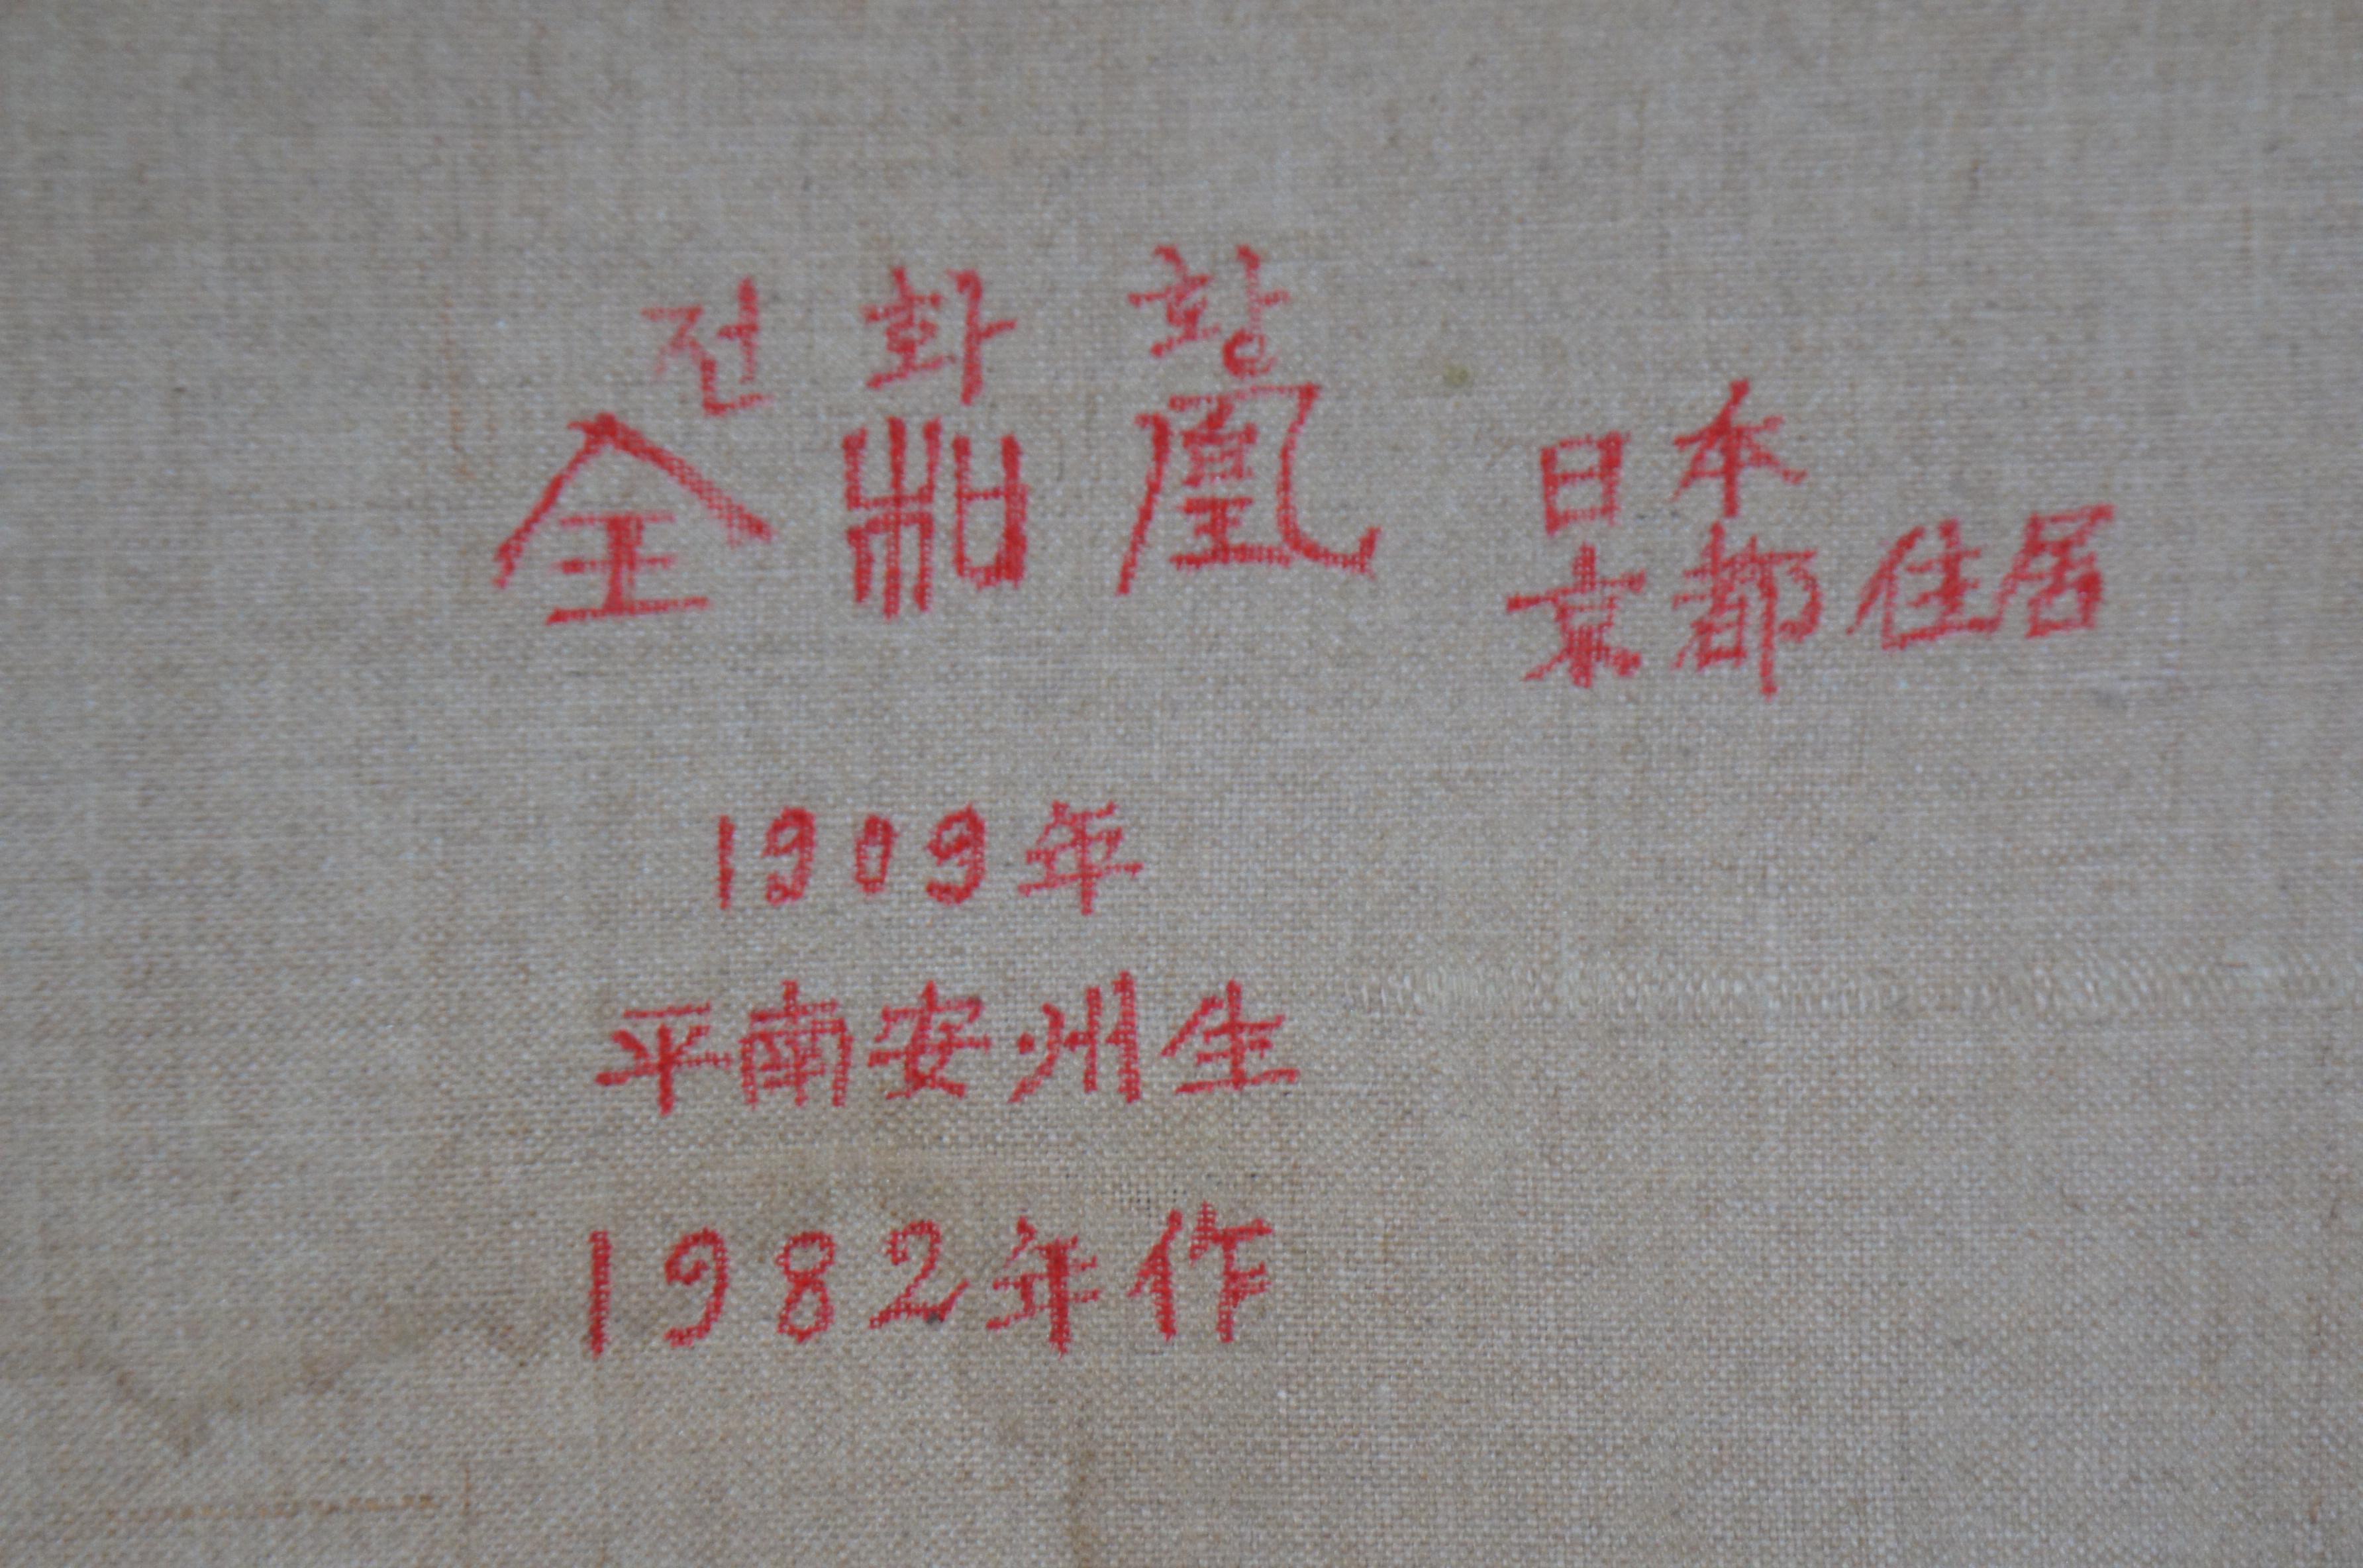 전화황
全和凰
日本
京都住居
1909年
平南安州生
1982年作